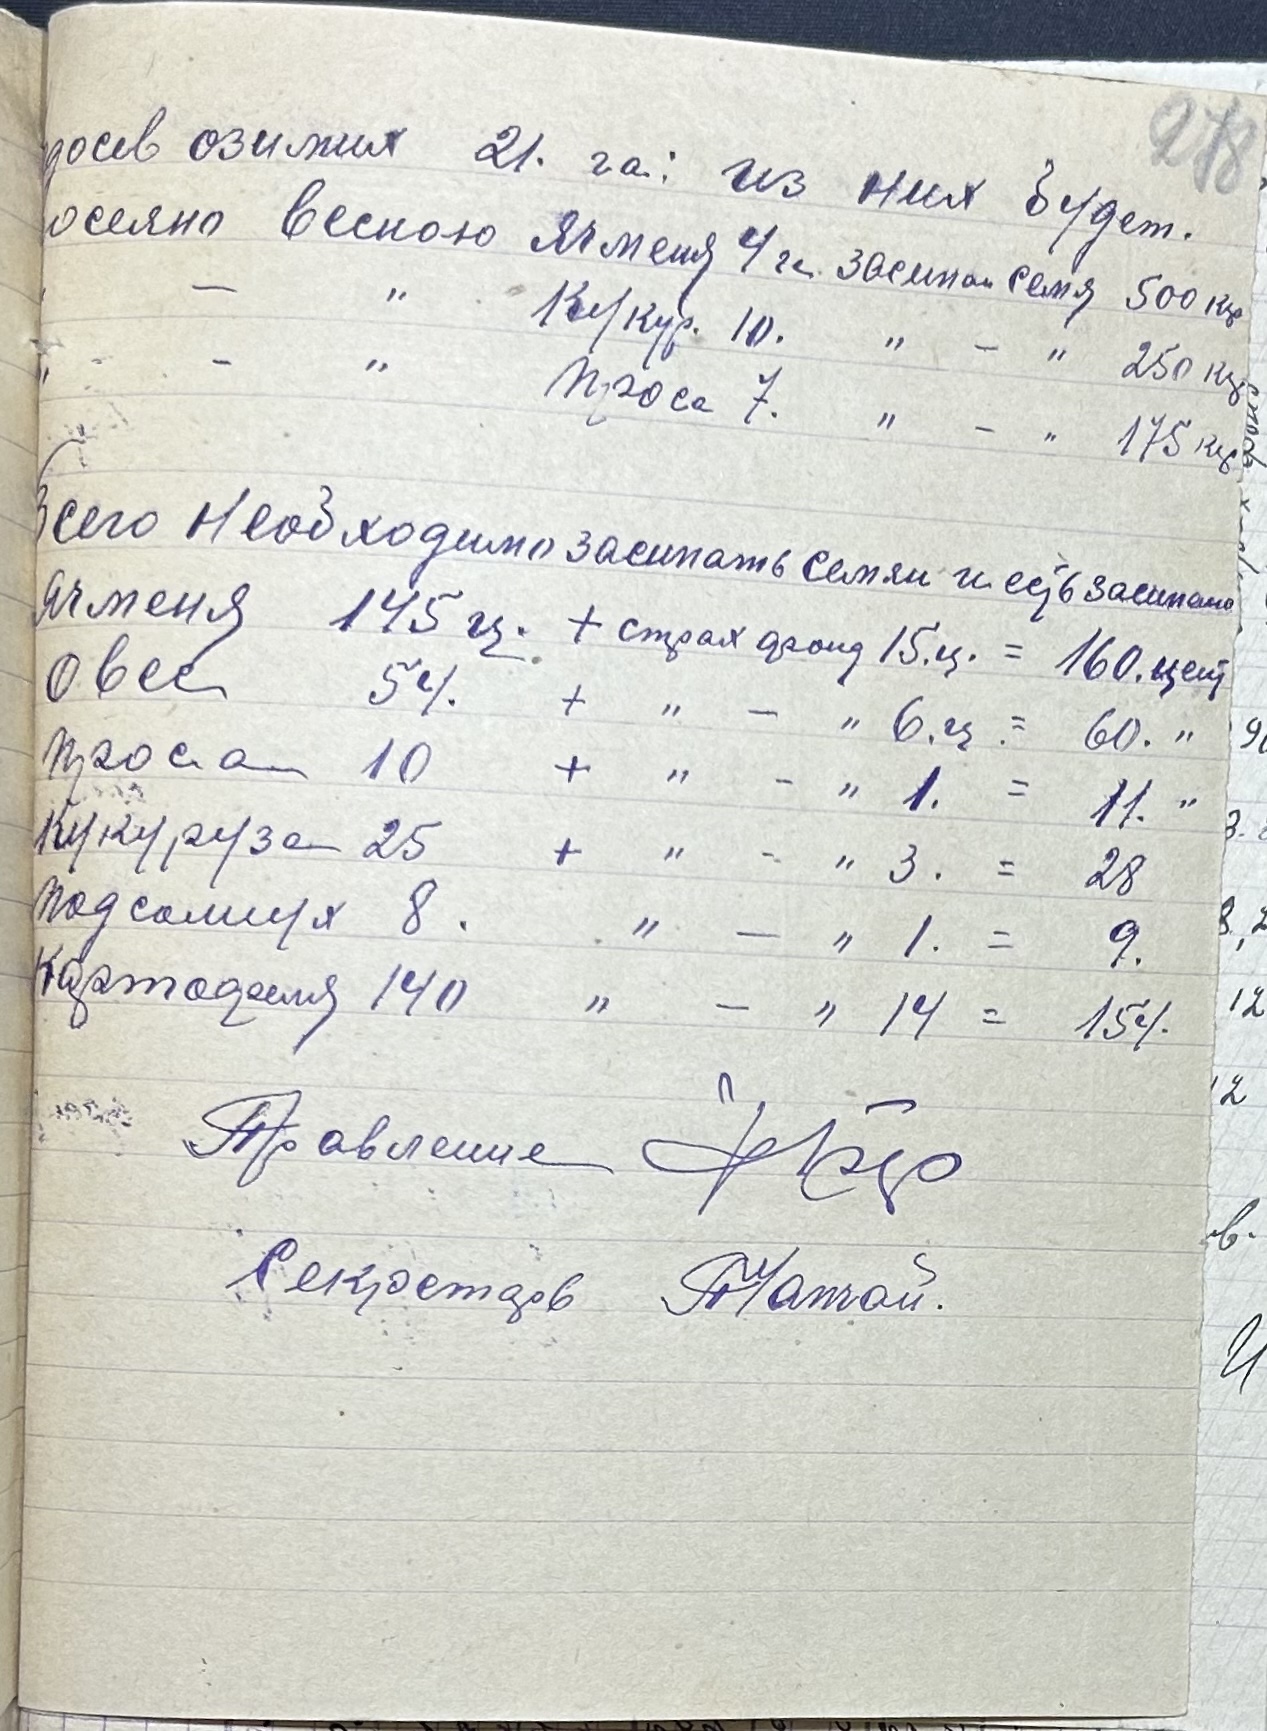 278
досев озимих 21. га: из них будет.
осеяно весною Ячменя 4 га засипан семя 500 кгр
" — " Кукур. 10. " — " 250 кгр
" - " Проса 7. " — " 175 кгр
Всего необходимо засипать семян и есть засипано
Ячменя 145 ц. + страх фонд 15.ц. = 160. цент
Овес 54. + " — " 6.ц. = 60. "
Проса 10 + " - " 1. = 11. "
Кукуруза 25 + " - " 3. = 28
Подсолнух 8. " — " 1. = 9.
Картофеля 140 " — " 14 = 154.
Правление
Секретарь